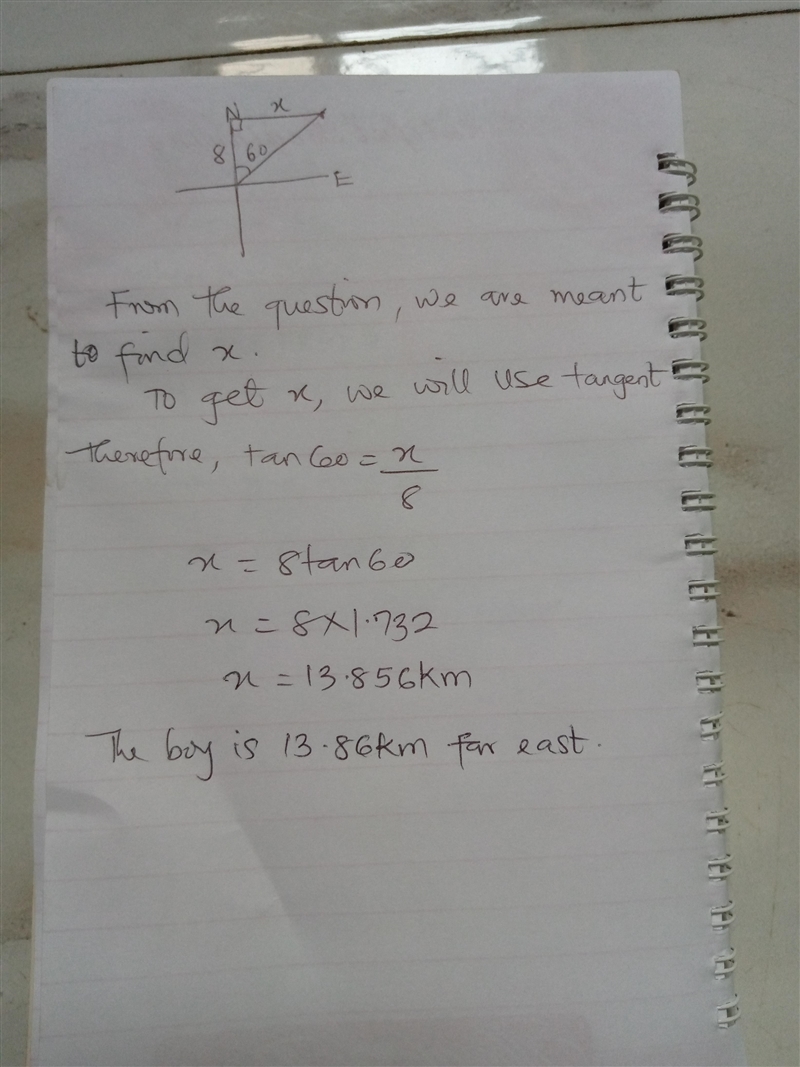 N x
8 60
E
From the question, we are meant
to find x.
To get x, we will use tangent
therefore, tan60 = x/8
x = 8tan60
x = 8×1.732
x = 13.856km
The boy is 13.86km far east.